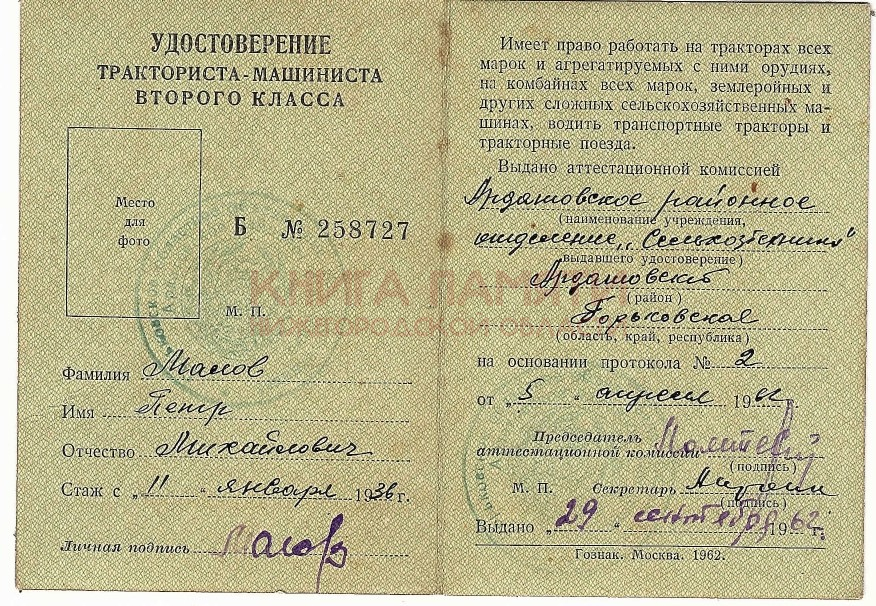 УДОСТОВЕРЕНИЕ
ТРАКТОРИСТА-МАШИНИСТА
ВТОРОГО КЛАССА
Место
для
фото
Б № 258727
М. П.
КНИГА ПАМЯТИ
НИЖЕГОРОДСКОЙ ОБЛАСТИ
Фамилия Малов
Имя Петр
Отчество Михайлович
Стаж с „11“ января 1936 г.
Личная подпись Малов
Имеет право работать на тракторах всех
марок и агрегатируемых с ними орудиях,
на комбайнах всех марок, землеройных и
других сложных сельскохозяйственных ма-
шинах, водить транспортные тракторы и
тракторные поезда.
Выдано аттестационной комиссией
Ардатовское районное
(наименование учреждения,
отделение „Сельхозтехника“
выдавшего удостоверение)
Ардатовский
(район)
Горьковская
(область, край, республика)
на основании протокола № 2
от „5“ апреля 1962 г.
Председатель
аттестационной комиссии
(подпись)
М. П. Секретарь
(подпись)
Выдано „29“ сентября 1962 г.
Гознак. Москва. 1962.